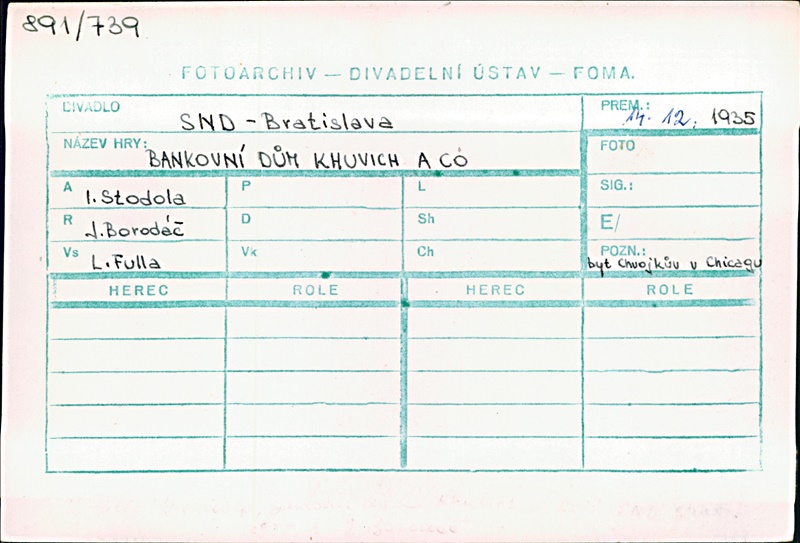 891/739
FOTOARCHIV — DIVADELNÍ ÚSTAV — FOMA.
DIVADLO SND - Bratislava
PREM.: 14. 12. 1935
NÁZEV HRY: BANKOVNÍ DŮM KHUVICH A CÓ
FOTO
A I. Stodola P L SIG.:
R J. Borodáč D Sh E/
Vs L. Fulla Vk Ch POZN.: byt Chvojkův v Chicagu
HEREC ROLE HEREC ROLE